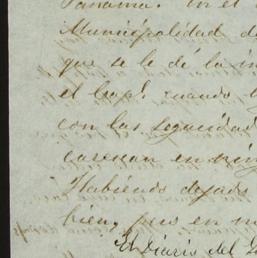 Panamá. En el
Municipalidad de
que se le dé la in
el Capl. cuando
con las seguridad
carescan en nin
Habiendo dejado
bien, pues en
El Diario del